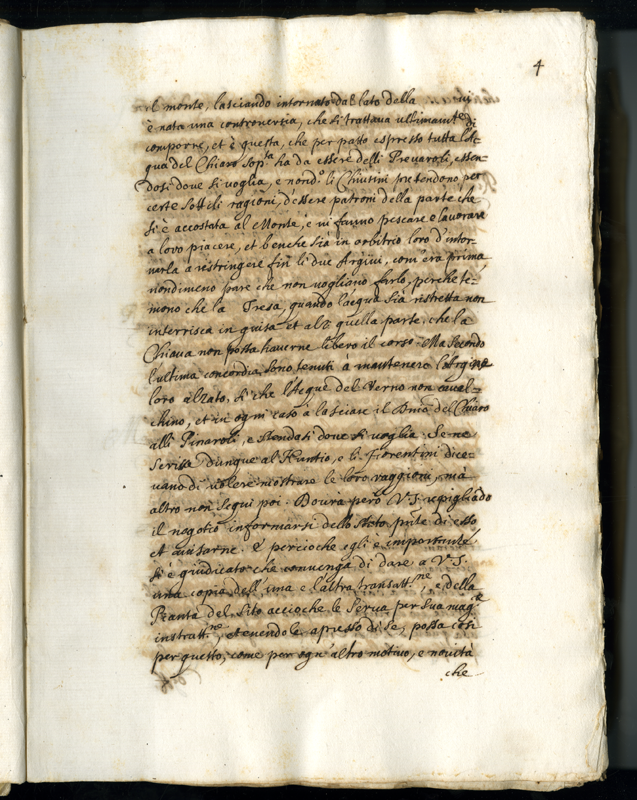 4
il monte, lasciando intornato dal lato della
è nata una controversia, che si trattava ultimamte di
comporre, et è questa, che per patto espresso tutta l'Ac-
qua del Chiaro sopta ha da essere delli Pievaroli, essen-
dosi dove si voglia, e nondo li Chiusini pretendono per
certe sottili ragioni, d'essere patroni della parte che
si è accostata al Monte, e ui fanno pescare e lavorare
a lovo piacere, et benche sia in arbitrio loro d'intor-
narla a restringere fin li due Argini, com'era prima,
nondimeno pare che non vogliano farlo, perche te-
mono che la Tresa, quando l'acqua sia ristretta non
interrisca in guisa et alzi quella parte, che la
Chiava non possa haverne libero il corso. Ma secondo
l'ultima concordia sono tenuti à mantenere l'Argine
loro alzato, si che l'Acque del Verno non caval-
chino, et in ogni caso à lasciare il Dnio del Chiaro
alli Piuaroli, e stendasi dove si voglia. Se ne
scrisse dunque al Nuntio, e li Fiorentini dice-
vano di volere mostrare le loro raggioni, mà
altro non seguì poi. Dourà però V.S. ripigliãdo
il negotio informarsi dello stato pñte di esso,
et avisarne. E percioche egli è importante
si è giudicato che convenga di dare a V.S.
una copia dell'una e l'altra transattne, e della
Pianta del sito accioche le serva per sua magre
instrattne, et tenendole apresso di se, possa così
per questo, come per ogn'altro motivo, e novità
che